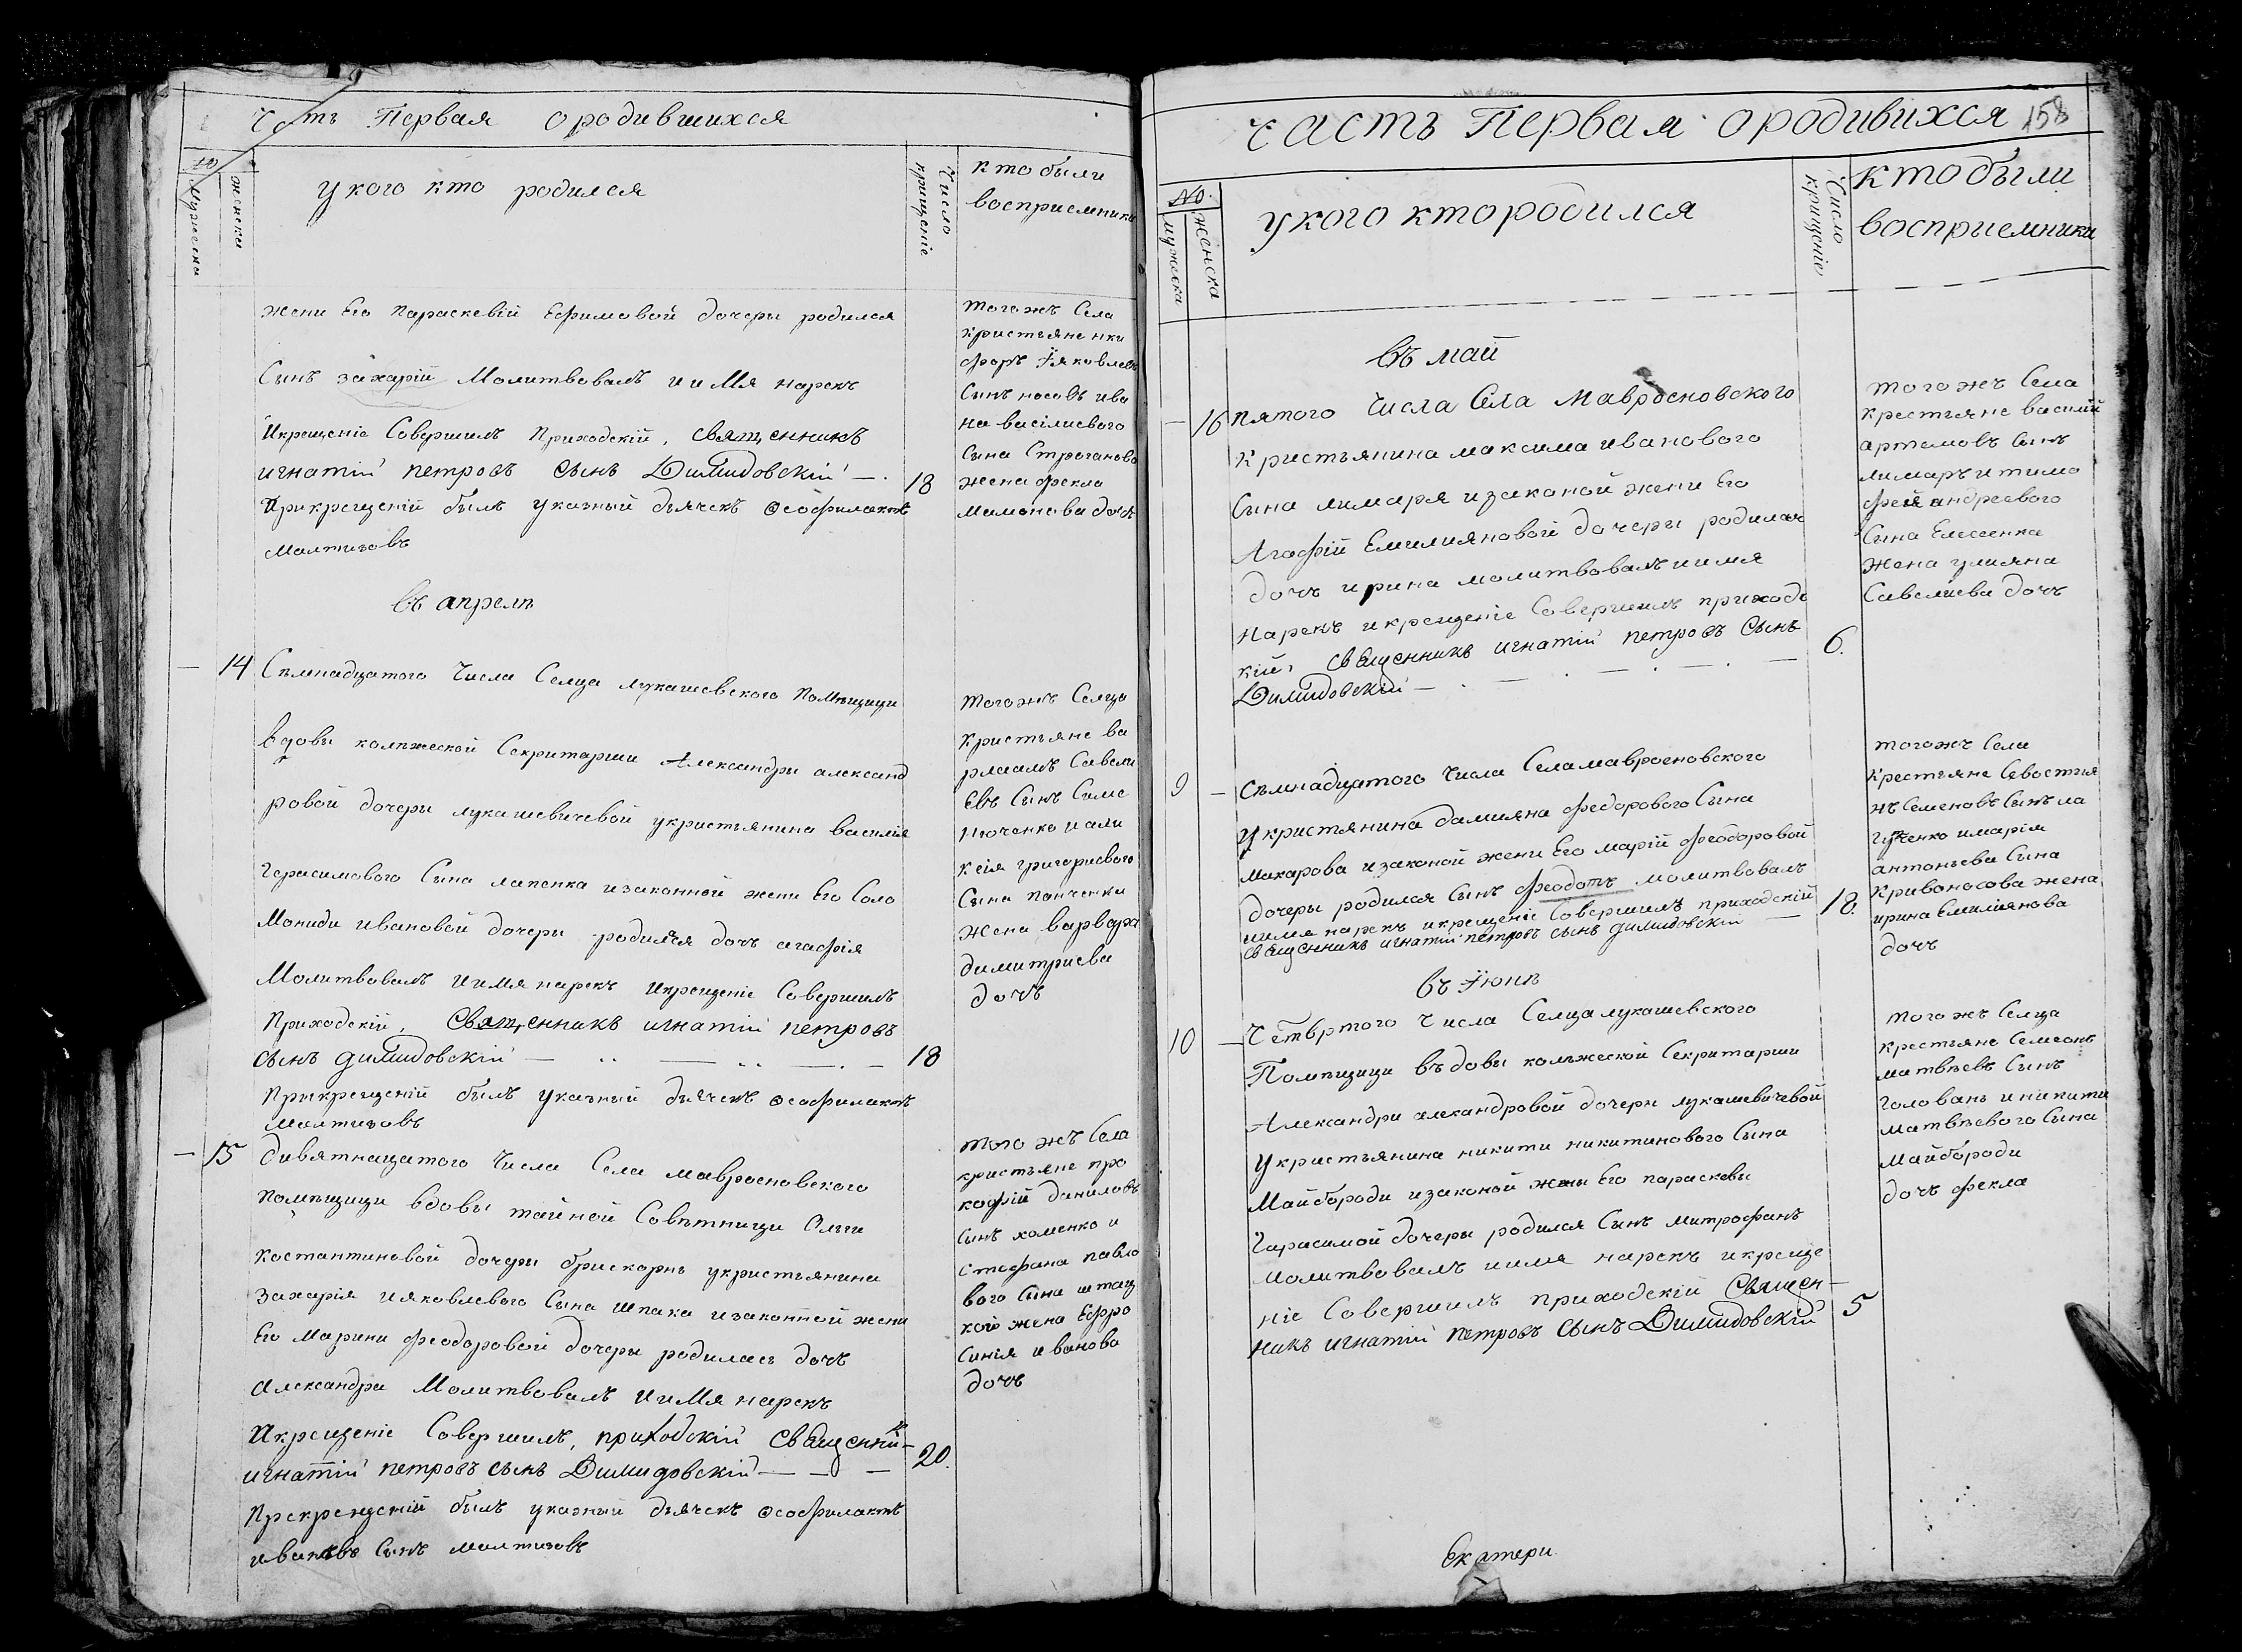 Часть Первая ородившихся
№
мужеска
женска
укого кто родился
Число крищеніе
кто были
восприемники
жени Его Параскевій Ефимовой дочеры родился
Сынъ захарій Молитвовалъ и иМя нарекъ
Икрещеніе Совершилъ Приходскій, священникъ
игнатій петровъ сынъ Димидовскій
18
Прикрещеній былъ указный дьячекъ Ѳеофилактъ
Малтизовъ
тогожъ Села
кристьяне ники
форъ Їяковлевъ
Сынъ носовъ ива
на васіліевого
Сына Строганово
жена фекла
Мамонова дочъ
въ апреле
14
Съмнадцатого Числа Селца лукашевского Помѣщици
вдовы колѣжеской Секритарши Александри александ
ровой дочери лукашевичевой укристьянина василія
Герасимового Сына лапенка изаконной жени Его Соло
Мониди ивановой дочери родился дочъ агафія
Молитвовалъ иимя нарекъ икрещеніе Совершилъ
Приходскій, Священникъ игнатій петровъ
сынъ димидовскій
18
Прыкрещеній былъ указный дьячекъ Ѳеофилактъ
Малтизовъ
тогожъ Селца
кристьяне ва
рлаамъ Савели
Евъ Сынъ Симе
нюченко иали
ксія григориевого
Сына панченка
жена варвара
димитриева
дочъ
15
дивятнацатого Числа Села мавроеновского
помѣщици вдовы тайной Совѣтници Олги
костантиновой дочери брискорнъ укристьянина
Захарія ияковлевого Сына шпака изаконной жени
Его Марини феодоровой дочеры родилась дочъ
Александра Молитвовалъ и иМя нарекъ
Икрещеніе Совершилъ, приходскій священник
игнатій петровъ сынъ Димидовскій
20.
Прекрещеній былъ указный дьячекъ Ѳеофилактъ
ивановъ Сынъ малтизовъ
того жъ Села
кристьяне про
кофій даниловъ
Сынъ хоменко и
стефана павло
вого Сына штац
кой жена Ефро
Синія иванова
дочъ
Часть Первая ородивихся
158
№.
мужеска
женска
укого кто родился
Число крищеніе
кто были
восприемники
въ май
16
пятого Числа Села Мавроеновского
кристьянина максима иванового
Сына лимаря изаконой жени Его
Агафій Емилияновой дочери родилася
дочъ ирина молитвовалъ иимя
нарекъ икрещеніе Совершилъ приходс
кій, священникъ игнатій петровъ сынъ
Димидовскій
6.
тогожъ Села
крестьяне василій
артемовъ Сынъ
лимаръ и тимо
фей андреевого
Сына Елесенка
жена улияна
Савелиева дочъ
9
Съмнадцатого Числа Села мавроеновского
укристянина дамияна федорового Сына
макарова изаконой жени Его марій феодоровой
дочеры родился Сынъ феодотъ молитвовалъ
иимя нарекъ икрещеніе Совершилъ приходскій
священникъ игнатій петровъ сынъ димидовскій
18.
тогожъ Села
крестьяне Севостья
нъ Семеновъ Сынъ ла
гученко имарія
антоньева Сына
Кривоносова жена
ирина Емилиянова
дочъ
въ Їюнѣ
10
Четвртого Числа Селца лукашевского
Помѣщици въдовы колѣжеской Секритарши
Александри алекандровой дочери лукашевичевой
укристьянина никити никитинового Сына
Майбороди изаконой жены Его параскевы
Гарасимой дочеры родился Сынъ митрофанъ
молитвовалъ иимя нарекъ икреще
ніе Совершилъ приходскій Священ
никъ игнатій петровъ сынъ Димидовскій
5
тогожъ Селца
крестьяне Семеонъ
матвѣевъ Сынъ
Головань иникити
матвѣевого Сына
Майбороди
дочъ фекла
Екатери